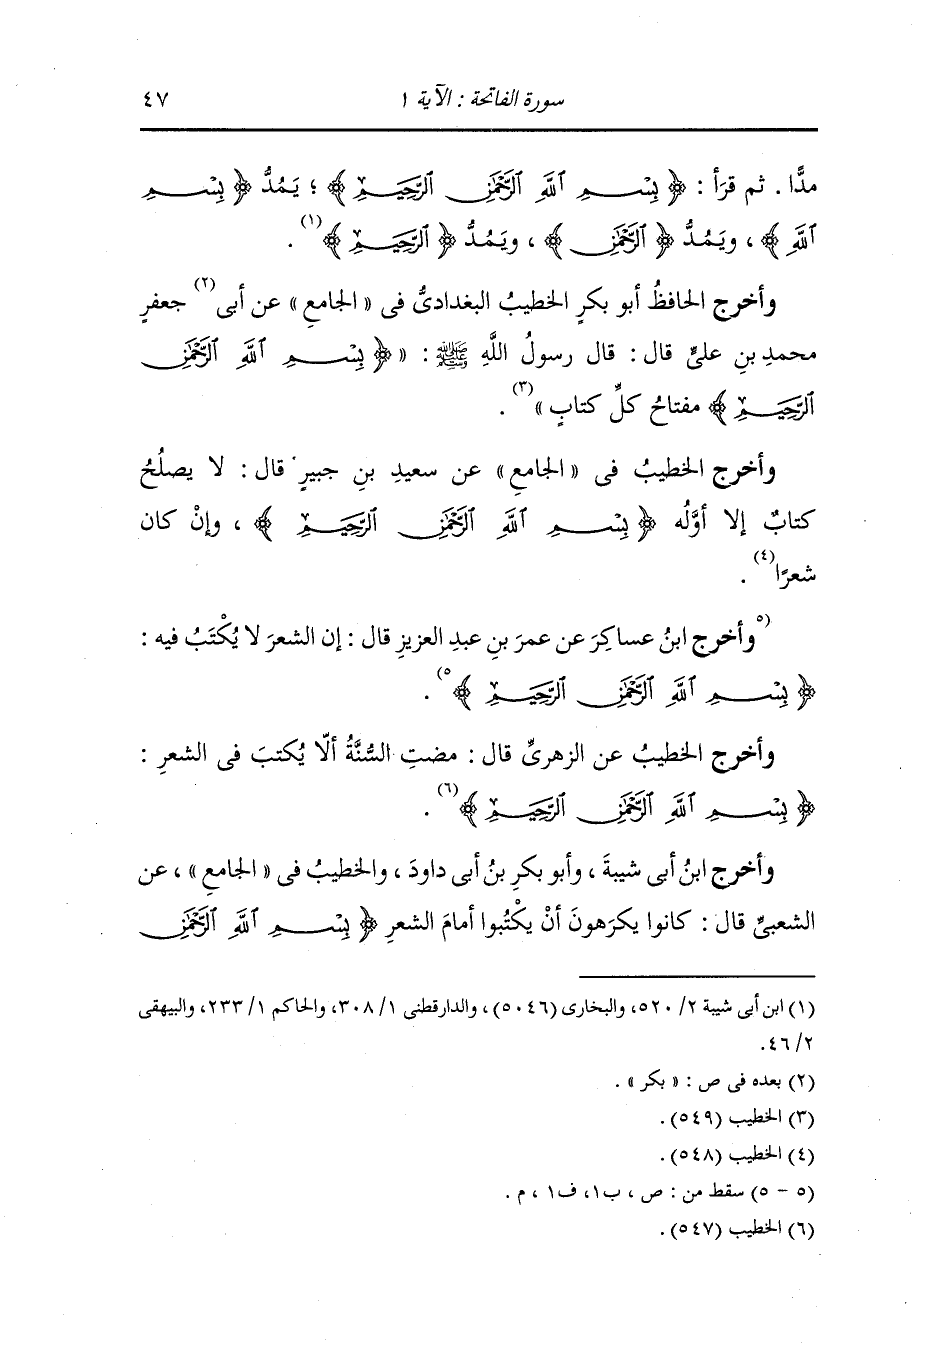 سورة الفاتحة : الآية ١ ٤٧
مدًّا . ثم قرَأ : ﴿ بِسْمِ ٱللَّهِ ٱلرَّحْمَٰنِ ٱلرَّحِيمِ ﴾ ؛ يَمُدُّ ﴿ بِسْمِ
ٱللَّهِ ﴾ ، ويَمُدُّ ﴿ ٱلرَّحْمَٰنِ ﴾ ، ويَمُدُّ ﴿ ٱلرَّحِيمِ ﴾(١) .
وأخرج الحافظُ أبو بكرٍ الخطيبُ البغدادىُّ فى « الجامعِ » عن أبى(٢) جعفرٍ
محمدِ بنِ علىٍّ قال : قال رسولُ اللَّهِ ﷺ : « ﴿ بِسْمِ ٱللَّهِ ٱلرَّحْمَٰنِ
ٱلرَّحِيمِ ﴾ مفتاحُ كلِّ كتابٍ »(٣) .
وأخرج الخطيبُ فى « الجامعِ » عن سعيدِ بنِ جبيرٍ قال : لا يصلُحُ
كتابٌ إلا أوَّلُه ﴿ بِسْمِ ٱللَّهِ ٱلرَّحْمَٰنِ ٱلرَّحِيمِ ﴾ ، وإنْ كان
شعرًا(٤) .
(٥وأخرج ابنُ عساكِرَ عن عمرَ بنِ عبدِ العزيزِ قال : إن الشعرَ لا يُكْتَبُ فيه :
﴿ بِسْمِ ٱللَّهِ ٱلرَّحْمَٰنِ ٱلرَّحِيمِ ﴾٥) .
وأخرج الخطيبُ عن الزهرىِّ قال : مضتِ السُّنَّةُ ألّا يُكتبَ فى الشعرِ :
﴿ بِسْمِ ٱللَّهِ ٱلرَّحْمَٰنِ ٱلرَّحِيمِ ﴾(٦) .
وأخرج ابنُ أبى شيبةَ ، وأبو بكرِ بنُ أبى داودَ ، والخطيبُ فى « الجامعِ » ، عن
الشعبىِّ قال : كانوا يكرَهونَ أنْ يكْتُبوا أمامَ الشعرِ ﴿ بِسْمِ ٱللَّهِ ٱلرَّحْمَٰنِ
(١) ابن أبى شيبة ٢/ ٥٢٠، والبخارى (٥٠٤٦) ، والدارقطنى ١/ ٣٠٨، والحاكم ١/ ٢٣٣، والبيهقى
٢/ ٤٦.
(٢) بعده فى ص : « بكر » .
(٣) الخطيب (٥٤٩) .
(٤) الخطيب (٥٤٨) .
(٥ - ٥) سقط من : ص ، ب١، ف١ ، م .
(٦) الخطيب (٥٤٧) .